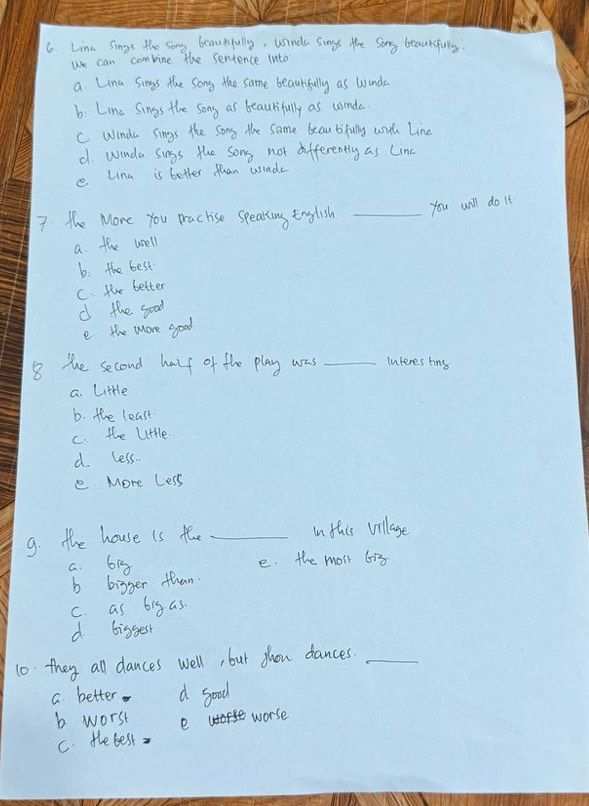 6. Lina Sings the song beautifully. Winda Sings the Song beautifully.
We can combine the sentence into:
a. Lina Sings the song the same beautifully as Winda
b. Lina Sings the song as beautifully as winda.
c Winda Sings the Song the Same beautifully with Lina
d. Winda Sings the Song not differently as Lina
e Lina is better than winda
7. the More You practise Speaking English ______ You will do it
a. the well
b. the best
c. the better
d the good
e. the more good
8 the second half of the play was ______ Interesting
a. Little
b. the least.
c. the Little.
d. less..
e More Less
9. the house is the ______ in this village
a. big e. the most big
b bigger than.
c. as big as.
d. biggest
10. they all dances well, but jhon dances. ______
a. better d good
b worst e worse worse
c. the best